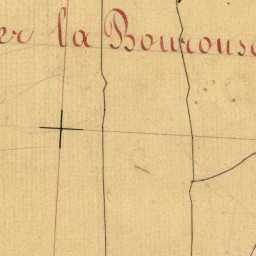 er la Bourous